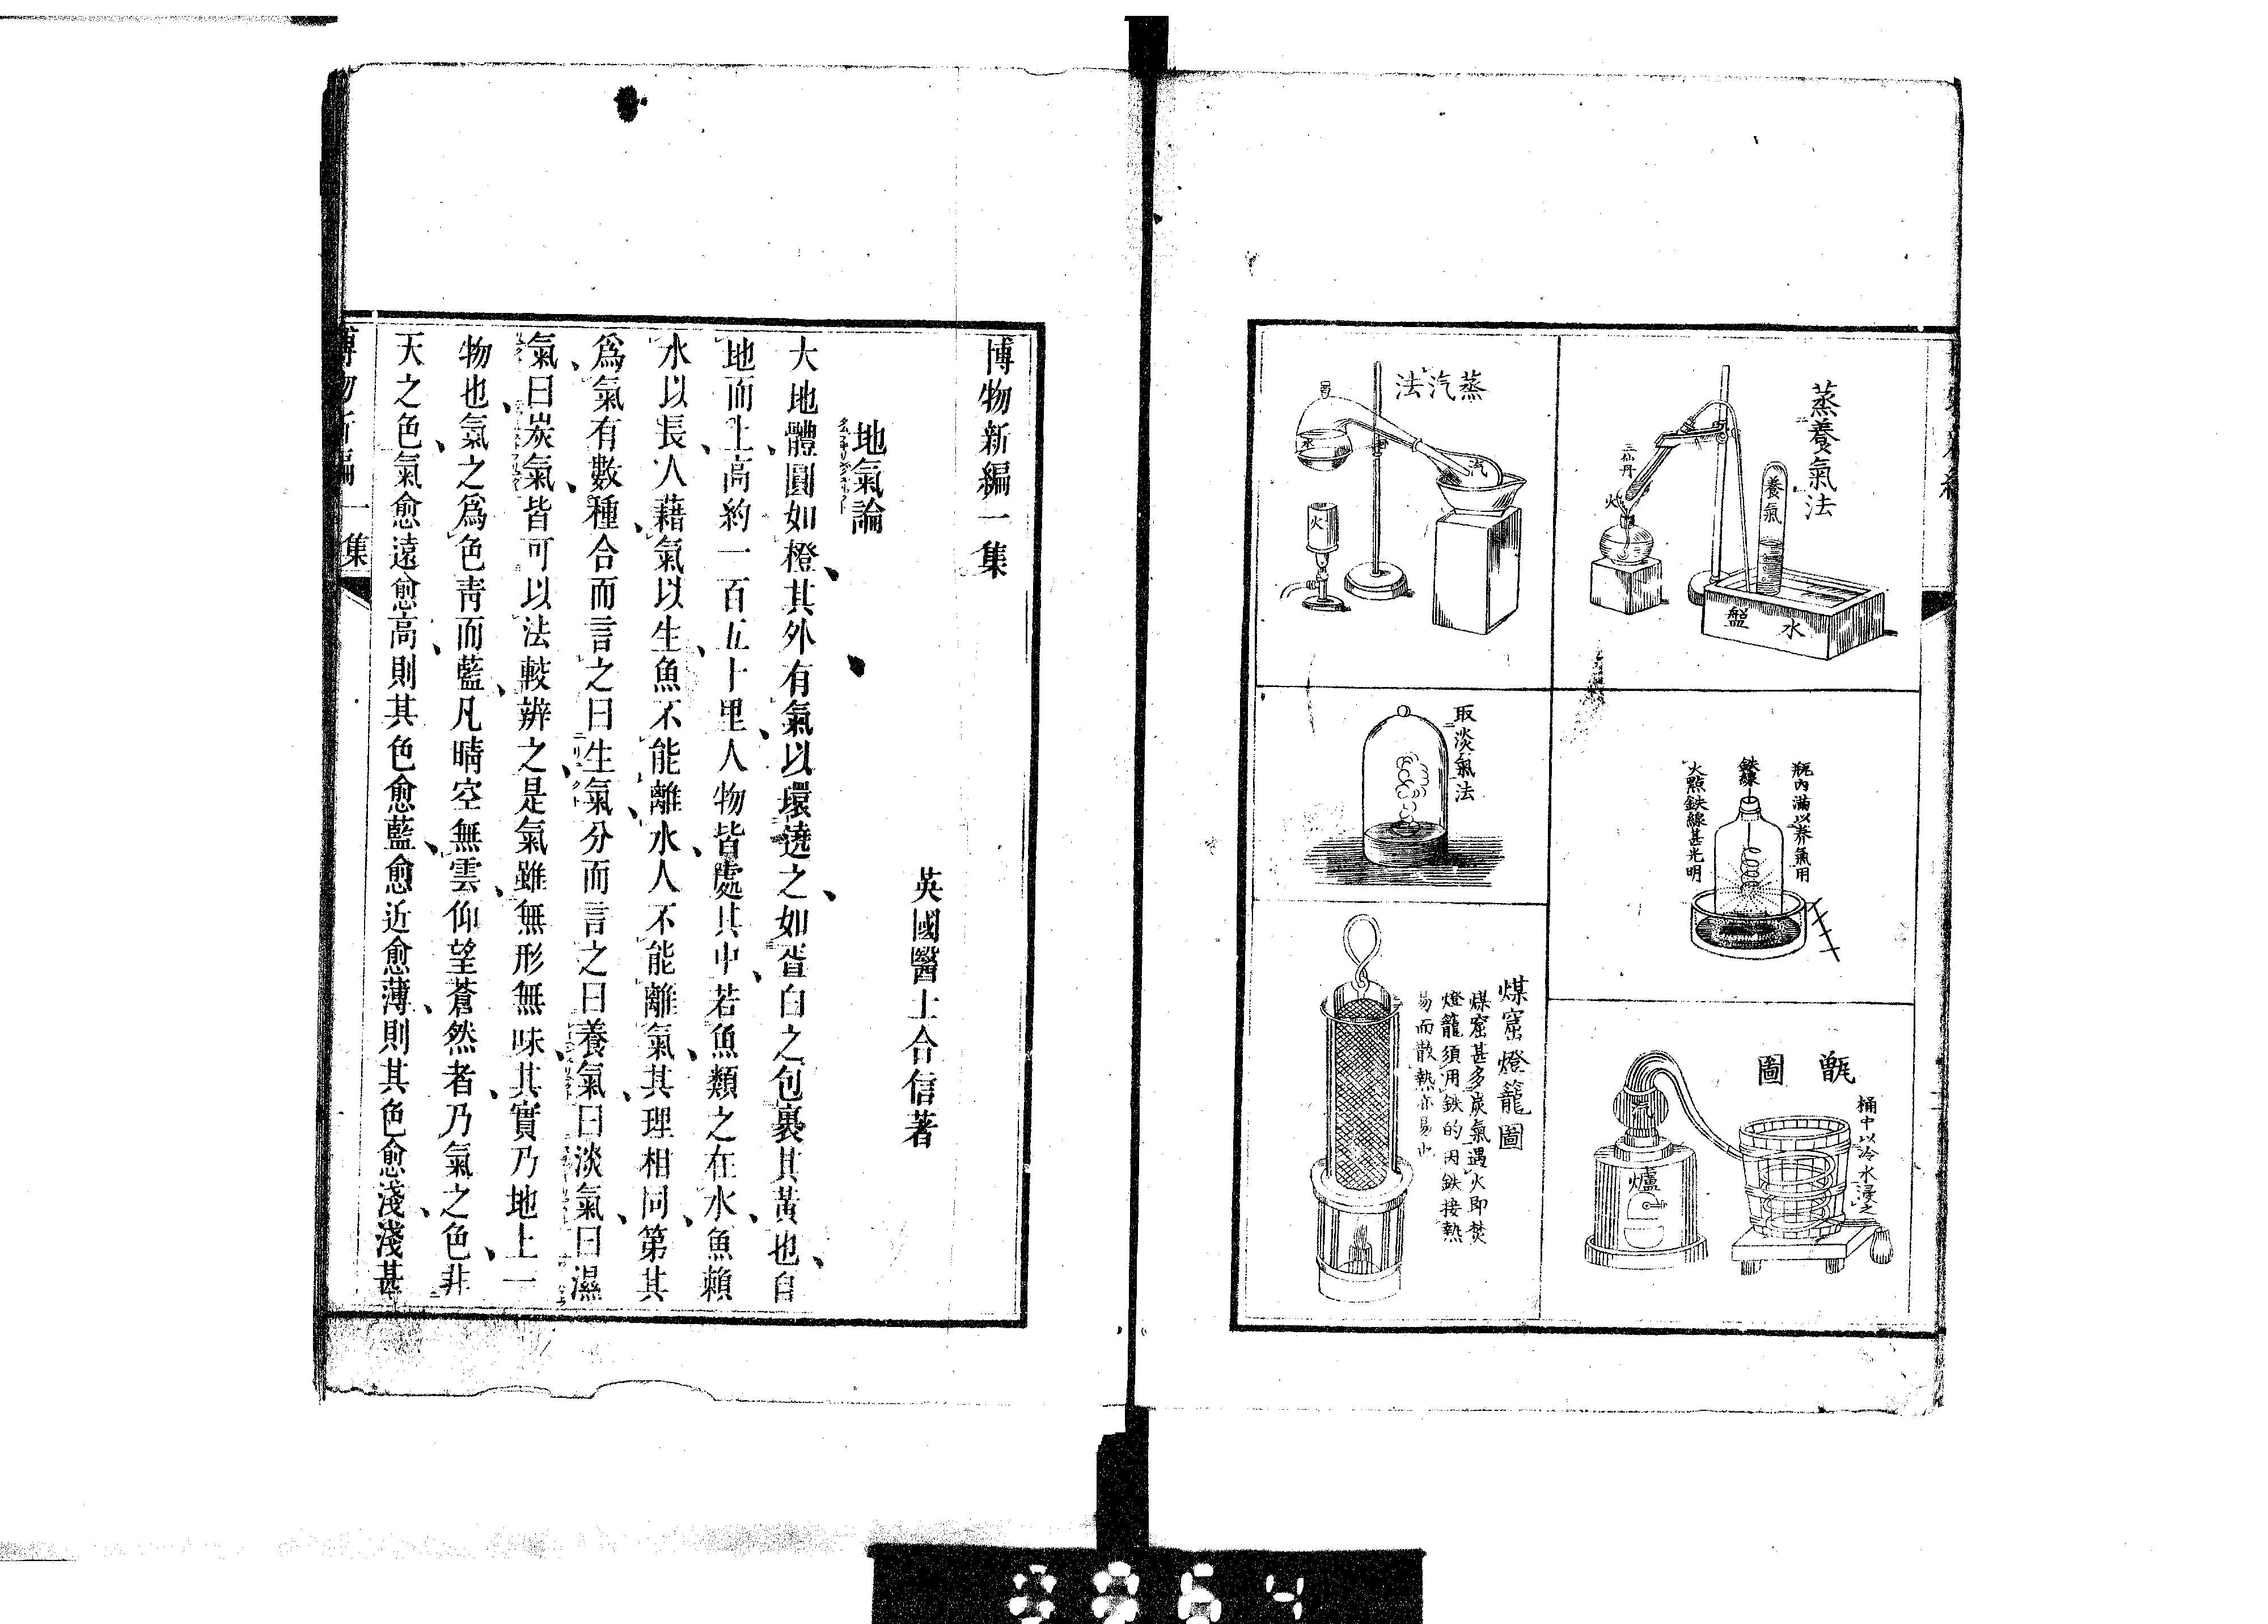 蒸養氣法
三仙丹
火
養氣
水盤
蒸汽法
水
汽
火
瓶內滿以养氣用
鉄線
火點鉄線甚光明
取淡氣法
甑圖
桶中以冷水浸之
汽
爐
煤窰燈籠圖
煤窰甚多炭氣遇火即焚
燈籠須用鉄的因鉄接熱
易而散熱亦易也
博物新編一集
英國醫士合信著
地氣論
大地體圓如橙其外有氣以環遶之如蛋白之包裹其黃也自
地而上高約一百五十里人物皆處其中若魚類之在水魚賴
水以長人藉氣以生魚不能離水人不能離氣其理相同第其
爲氣有數種合而言之曰生氣分而言之曰養氣曰淡氣曰濕
氣曰炭氣皆可以法較辨之是氣雖無形無味其實乃地上一
物也氣之爲色靑而藍凡晴空無雲仰望蒼然者乃氣之色非
天之色氣愈遠愈高則其色愈藍愈近愈薄則其色愈淺淺甚
博物新編一集
3364